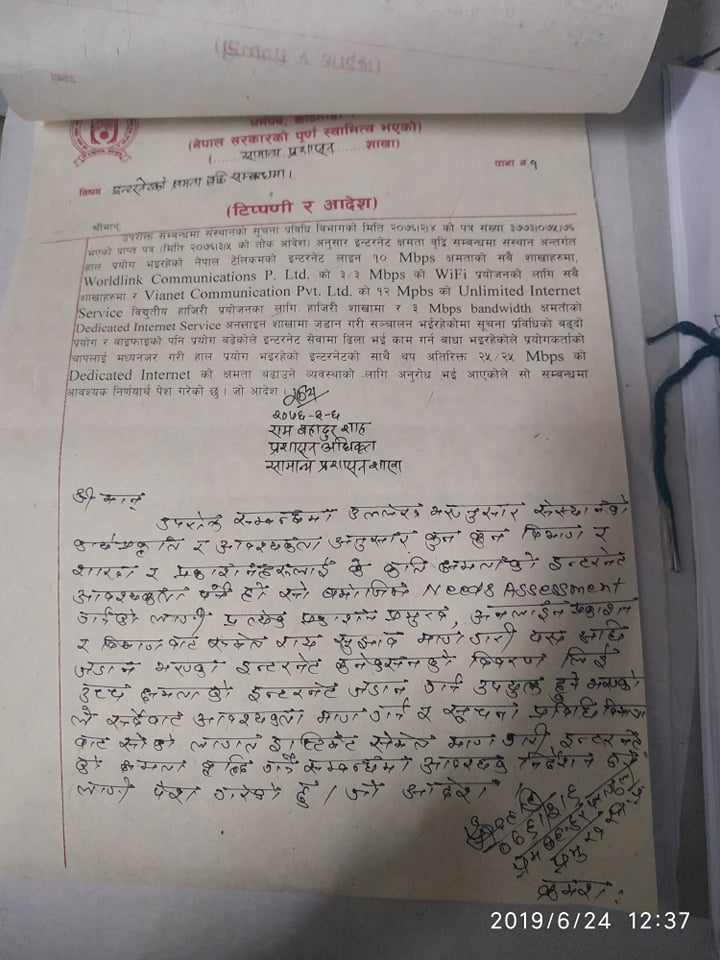 धर्मपथ, काठमाडौं
(नेपाल सरकारको पूर्ण स्वामित्व भएको)
(.....सामान्य प्रशासन.....शाखा)
पाना नं १
विषय इन्टरनेटको क्षमता वृद्धि सम्बन्धमा।
(टिप्पणी र आदेश)
श्रीमान्,
उपरोक्त सम्बन्धमा संस्थानको सूचना प्रविधि विभागको मिति २०७६।२।४ को पत्र संख्या ३७७३।०७५।७६
भएको प्राप्त पत्र (मिति २०७६।२।५ को तोक आदेश) अनुसार इन्टरनेट क्षमता वृद्धि सम्बन्धमा संस्थान अन्तर्गत
हाल प्रयोग भइरहेको नेपाल टेलिकमको इन्टरनेट लाइन १० Mbps क्षमताको सबै शाखाहरूमा,
Worldlink Communications P. Ltd. को ३/३ Mbps को WiFi प्रयोजनको लागि सबै
शाखाहरूमा र Vianet Communication Pvt. Ltd. को १२ Mpbs को Unlimited Internet
Service विद्युतीय हाजिरी प्रयोजनका लागि हाजिरी शाखामा र ३ Mbps bandwidth क्षमताको
Dedicated Internet Service अनलाइन शाखामा जडान गरी सञ्चालन भईरहेकोमा सूचना प्रविधिको बढ्दो
प्रयोग र वाइफाइको पनि प्रयोग बढेकोले इन्टरनेट सेवामा ढिला भई काम गर्न बाधा भइरहेकोले प्रयोगकर्ताको
चापलाई मध्यनजर गरी हाल प्रयोग भइरहेको इन्टरनेटको साथै थप अतिरिक्त २५/२५ Mbps को
Dedicated Internet को क्षमता बढाउने व्यवस्थाको लागि अनुरोध भई आएकोले सो सम्बन्धमा
आवश्यक निर्णयार्थ पेश गरेको छु । जो आदेश ।
२०७६-२-६
राम बहादुर शाह
प्रशासन अधिकृत
सामान्य प्रशासन शाखा
श्रीमान्
उपरोक्त सम्बन्धमा उल्लेख भए अनुसार संस्थानको
कार्य प्रकृति र आवश्यकता अनुसार कुन कुन विभाग र
शाखा र प्रकाशनहरुलाई के कति क्षमताको इन्टरनेट
आवश्यकता पर्ने हो सो बमोजिम Needs Assessment
गर्नको लागी प्रत्येक प्रकाशन प्रमुख, अनलाईन प्रकाशन
र विभागबाट समेत राय सुझाव माग गरी यस अघि
जडान भएका इन्टरनेट कनेक्सनको विवरण लिई
उच्च क्षमताको इन्टरनेट जडान गर्न उपयुक्त हुने भएको
ले सबैबाट आवश्यकता माग गर्न र सूचना प्रविधि विभाग
बाट सोको लागत इष्टिमेट समेत माग गरी इन्टरनेट
को क्षमता वृद्धि गर्ने सम्बन्धमा आवश्यक निर्देशनको
लागी पेश गरेको छु । जो आदेश ।
क्रमशः
2019/6/24 12:37